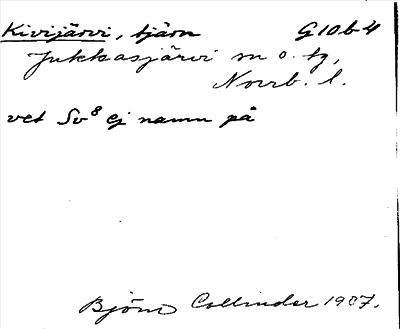 Kivijärvi, tjärn G10b4
Jukkasjärvi sn o. tg,
Norrb. l.
vet Sv⁸ ej namn på
Björn Collinder 1937.